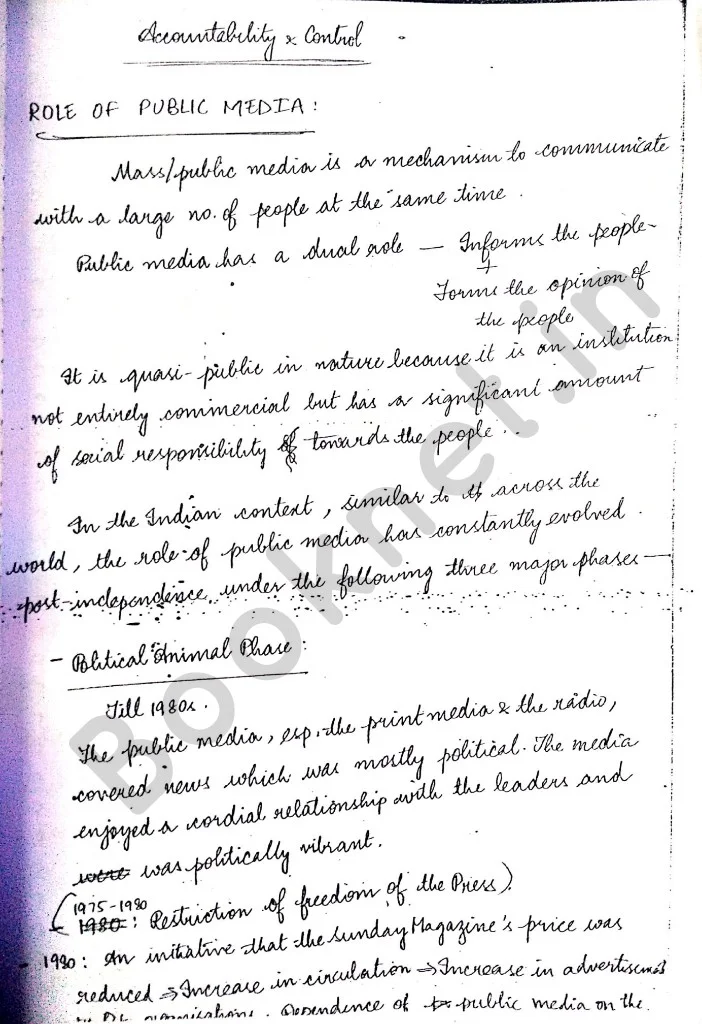 Accountability & Control
ROLE OF PUBLIC MEDIA:
Mass/public media is a mechanism to communicate
with a large no. of people at the same time.
Public media has a dual role — Informs the people
+
Forms the opinion of
the people
It is quasi-public in nature because it is an institution
not entirely commercial but has a significant amount
of social responsibility of towards the people.
In the Indian context, similar to it across the
world, the role of public media has constantly evolved
post-independence under the following three major phases —
- Political Animal Phase:
Till 1980s.
The public media, esp. the print media & the radio,
covered news which was mostly political. The media
enjoyed a cordial relationship with the leaders and
were was politically vibrant.
1975-1980
- 1980: Restriction of freedom of the Press)
- 1980: An initiative that the Sunday Magazine's price was
reduced ⇒ Increase in circulation ⇒ Increase in advertisements
organisations. Dependence of public media on the
Booknet.in